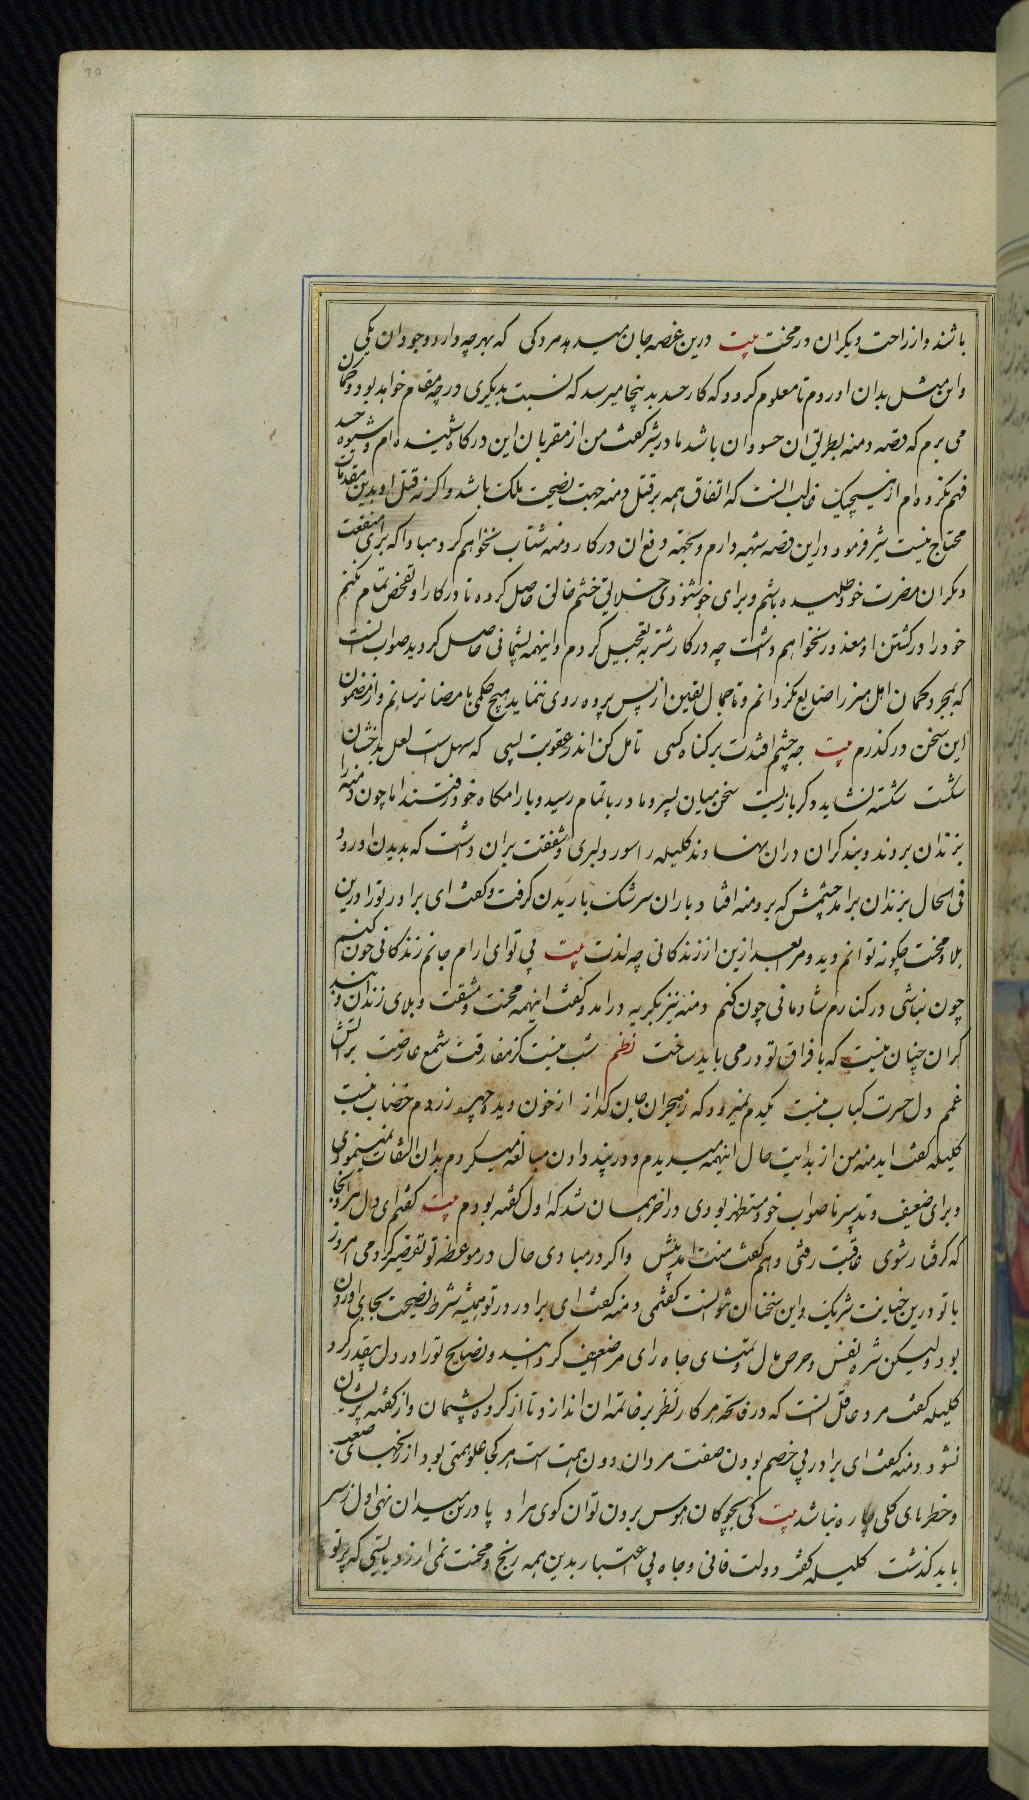 باشند و از راحت دیکران در محنت بیت درین غصه جان میدهد مردکی که بهر چه دارد وجود ان یکی
و این مثل بدان اوردم تا معلوم کردد که کار حسد بدینجا میرسد که نسبت بدیکری در چه مقام خواهد بود و کمان
می برم که قصه دمنه بطریق ان حسودان باشد مادر شیر کفت من از مقربان این درکاه نشنیده ام و شیوه حسد
فهم نکرده ام از هیچیک غالب انست که اتفاق همه بر قتل دمنه جهت نصیحت ملک باشد و اکرنه قتل او بدین مقدمات
محتاج نیست شیر فرمود در این قصه شبهه دارم و بجهة دفع ان در کار دمنه شتاب نخواهم کرد مبادا که برای منفعت
دیکران مضرت خود طلبیده باشم و برای خوشنودی خلایق خشم خالق حاصل کرده تا در کار او تفحص تمام نکنم
خود را در کشتن او معذور نخواهم داشت چه در کار شتربه تعجیل کردم و اینهمه پشیمانی حاصل کردید صواب انست
که بمجرد کمان اهل هنر را ضایع نکردانم و تا جمال یقین از پس پرده روی ننماید هیچ حکمی بامضا نرسانم و از مضمون
این سخن در نکذرم بیت چه چشم افتدت بر کناه کسی تامل کن اندر عقوبت بسی که سهل است لعل بدخشان
شکست شکسته نشاید دکر باز بست سخن میان پسر و مادر باتمام رسید و بارامکاه خود رفتند اما چون دمنه را
بزندان بردند و بند کران در ان نهادند کلیله را سوز دلبری و شفقت بران داشت که بدیدن او رود
فی الحال بزندان برامد چشمش که بر دمنه افتاد باران سرشک باریدن کرفت و کفت ای برادر تو را درین
بلا و محنت چکونه توانم دید و مرا بعد ازین از زندکانی چه لذت بیت بی تو ای ارام جانم زندکانی چون کنم
چون نباشی در کنارم شادمانی چون کنم دمنه نیز بکریه درامد و کفت اینهمه محنت و مشقت و بلای زندان و بند
کران چنان نیست که با فراق تو در می باید ساخت نظم شب نیست کز مفارقت شمع عارضت بر اتش
غمم دل حسرت کباب نیست یکدم نمیرود که ز هجران جان کداز از خون دیده چهره زردم خضاب نیست
کلیله کفت ای دمنه من از بدایت حال اینهمه میدیدم و در پند دادن مبالغه میکردم بدان التفات نمینمودی
و برای ضعیف و تدبیر ناصواب خود مستظهر بودی و اخر همان شد که اول کفته بودم بیت کفتم ای دل مرو انجا
که کرفتار شوی عاقبت رفتی و هم کفت منت امد پیش و اکر در مبادی حال در موعظه تو تقصیر کردمی امروز
با تو درین خیانت شریک و این سخنان نتوانست کفتمی دمنه کفت ای برادر تو همیشه شرط نصیحت بجای اورده
بود و لیکن شره نفس و حرص مال و تمنای جاه رای مرا ضعیف کردانید و نصایح تو را در دل بیقدر کرد
کلیله کفت مرد عاقل انست که در فاتحه هر کار نظر بر خاتمه ان اندازد تا از کرده پشیمان و از کفته پریشان
نشود دمنه کفت ای برادر بی خصم بودن صفت مردان دون همت است هر کجا علو همتی بود از رنجهای صعب
و خطرهای کلی چاره نباشد بیت کی بچوکان هوس بردن توان کوی مراد پا درین میدان نهی اول ز سر
باید کذشت کلیله کفت دولت فانی و جاه بی اعتبار بدین همه رنج و محنت نمی ارزد بایستی که پرتو